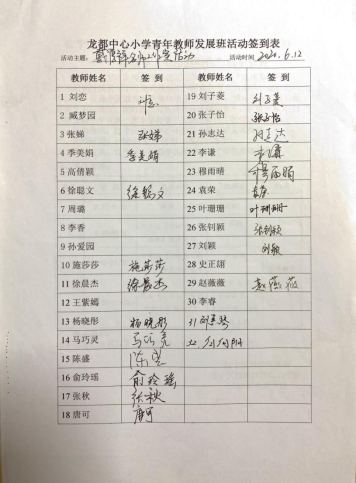 龙都中心小学青年教师发展班活动签到表
活动主题 活动时间 2020.6.12
教师姓名 签 到 教师姓名 签 到
1 刘恋 刘恋 19 刘子菱 刘子菱
2 臧梦园 20 张子怡 张子怡
3 张娣 张娣 21 孙志达 孙志达
4 季美娟 季美娟 22 李谦 李谦
5 高倩颖 23 穆雨晴 穆雨晴
6 徐聪文 徐聪文 24 袁荣 袁荣
7 周璐 25 叶珊珊 叶珊珊
8 李香 26 张钊颖 张钊颖
9 孙爱园 27 刘颖 刘颖
10 施莎莎 施莎莎 28 史正翃
11 徐晨杰 徐晨杰 29 赵薇薇 赵薇薇
12 王紫嫣 30 李睿
13 杨晓彤 杨晓彤 31
14 马巧灵 马巧灵 32
15 陈盛 陈盛
16 俞玲瑶 俞玲瑶
17 张秋 张秋
18 唐可 唐可